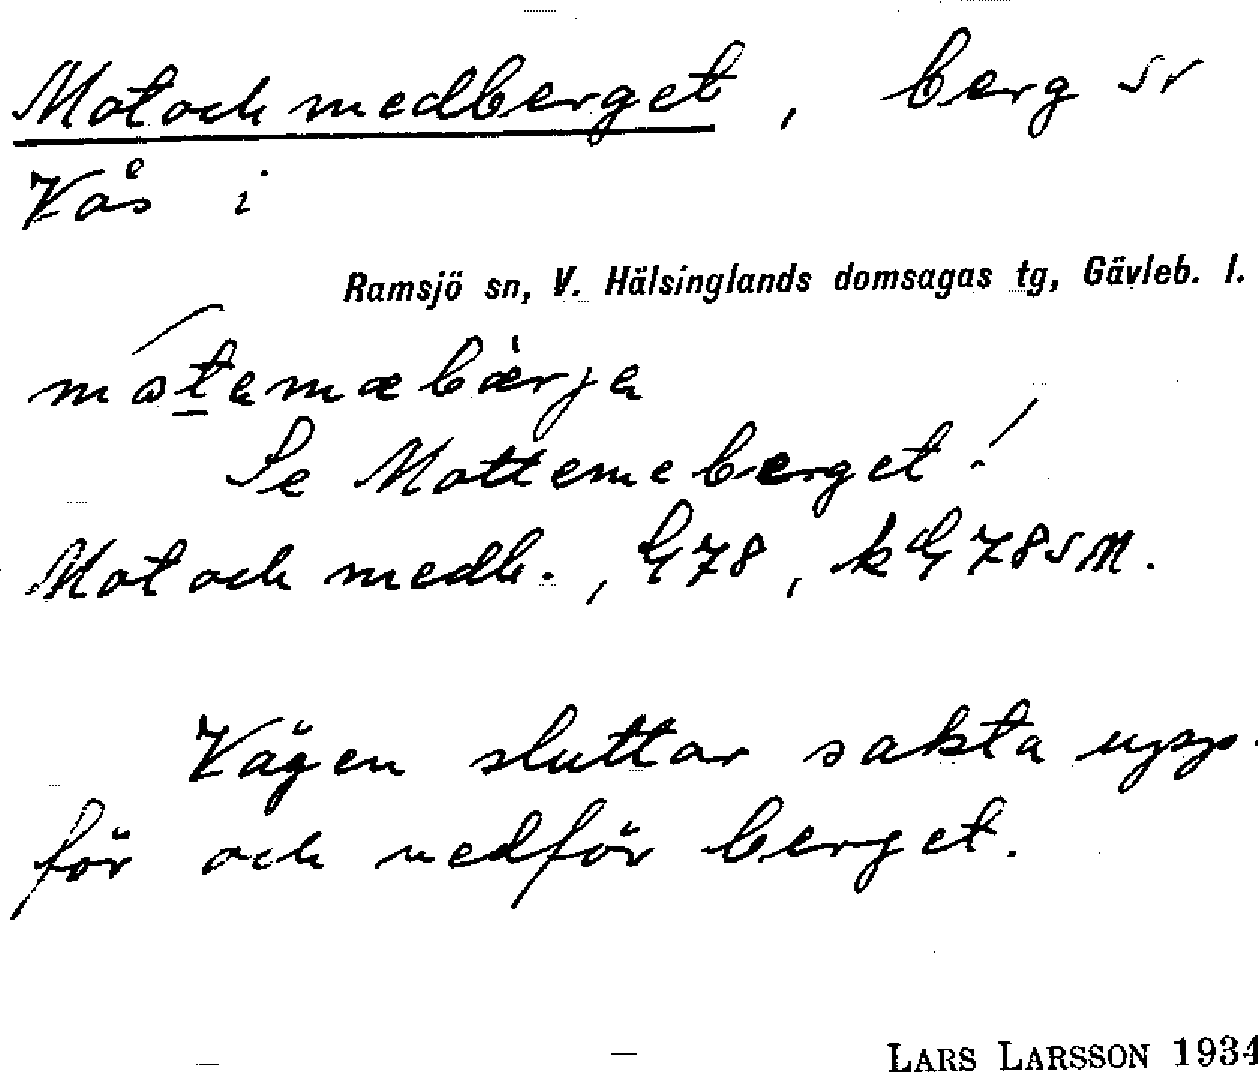 Motochmedberget, berg sv
Vås i
Ramsjö sn, V. Hälsinglands domsagas tg, Gävleb. l.
Se Mottemeberget!
Motochmedb., G78, kG78SM.
Vägen sluttar sakta upp-
för och nedför berget.
LARS LARSSON 1934